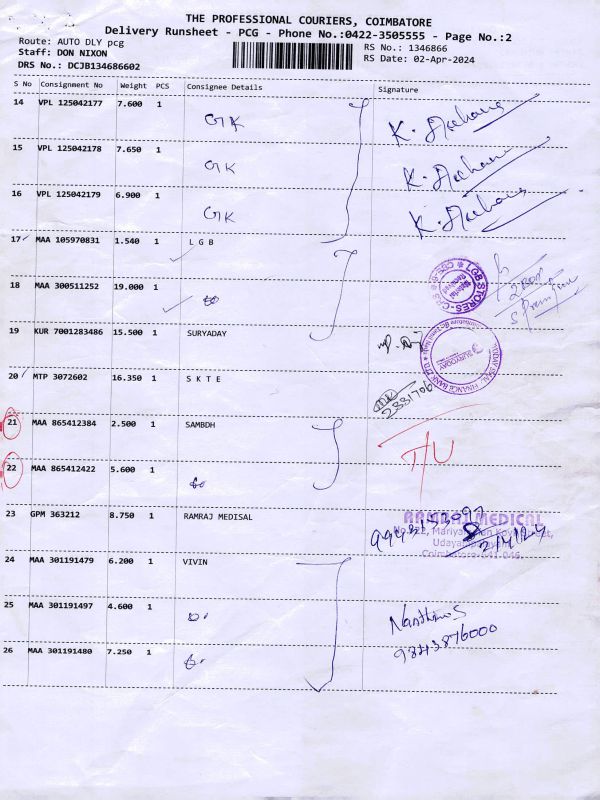 THE PROFESSIONAL COURIERS, COIMBATORE
Delivery Runsheet - PCG - Phone No.:0422-3505555 - Page No.:2
Route: AUTO DLY pcg
RS No.: 1346866
Staff: DON NIXON
RS Date: 02-Apr-2024
DRS No.: DCJB134686602
S No Consignment No Weight PCS Consignee Details Signature
14 VPL 125042177 7.600 1
GK
K.
15 VPL 125042178 7.650 1
GK
K.
16 VPL 125042179 6.900 1
GK
K.
17 MAA 105970831 1.540 1 L G B
LGB STORES-CBS
18 MAA 300511252 19.000 1
19 KUR 7001283486 15.500 1 SURYADAY
SURYODAY
FINANCE BANK LTD
20 MTP 3072602 16.350 1 S K T E
21 MAA 865412384 2.500 1 SAMBDH
22 MAA 865412422 5.600 1
23 GPM 363212 8.750 1 RAMRAJ MEDISAL
RAMRAJ MEDICAL
Coimbatore-641 046.
24 MAA 301191479 6.200 1 VIVIN
25 MAA 301191497 4.600 1
26 MAA 301191480 7.250 1
9843876000